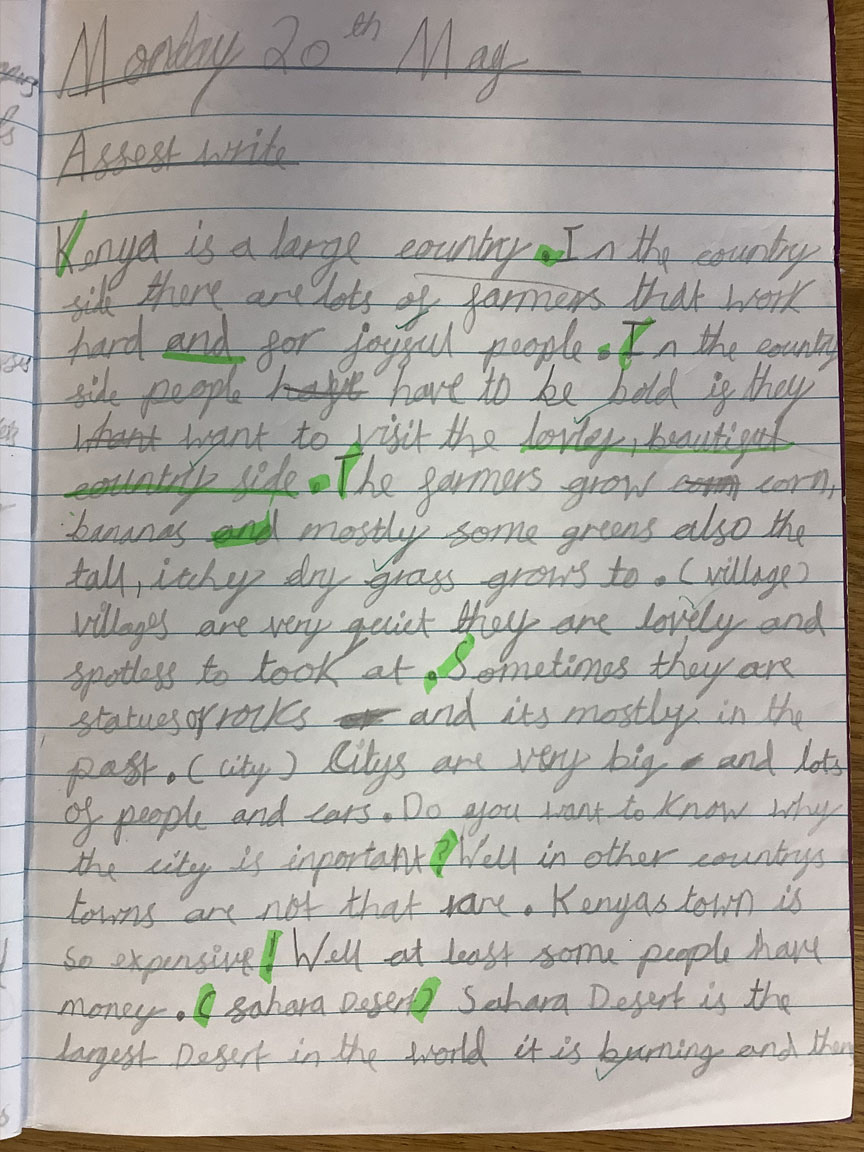 Monday 20th May
Assest write
Kenya is a large country. In the country
side there are lots of farmers that work
hard and for joyful people. In the country
side people have to be bold if they
want to visit the lovley, beautiful
country side. The farmers grow corn,
bananas and mostly some greens also the
tall, itchy dry grass grows to. (village)
villages are very quiet they are lovely and
spotless to look at. Sometimes they are
statues or rocks and its mostly in the
past. (city) Citys are very big and lots
of people and cars. Do you want to know why
the city is inportant? Well in other countrys
towns are not that rare. Kenyas town is
so expensive! Well at least some people have
money. (sahara Desert) Sahara Desert is the
largest Desert in the world it is burning and